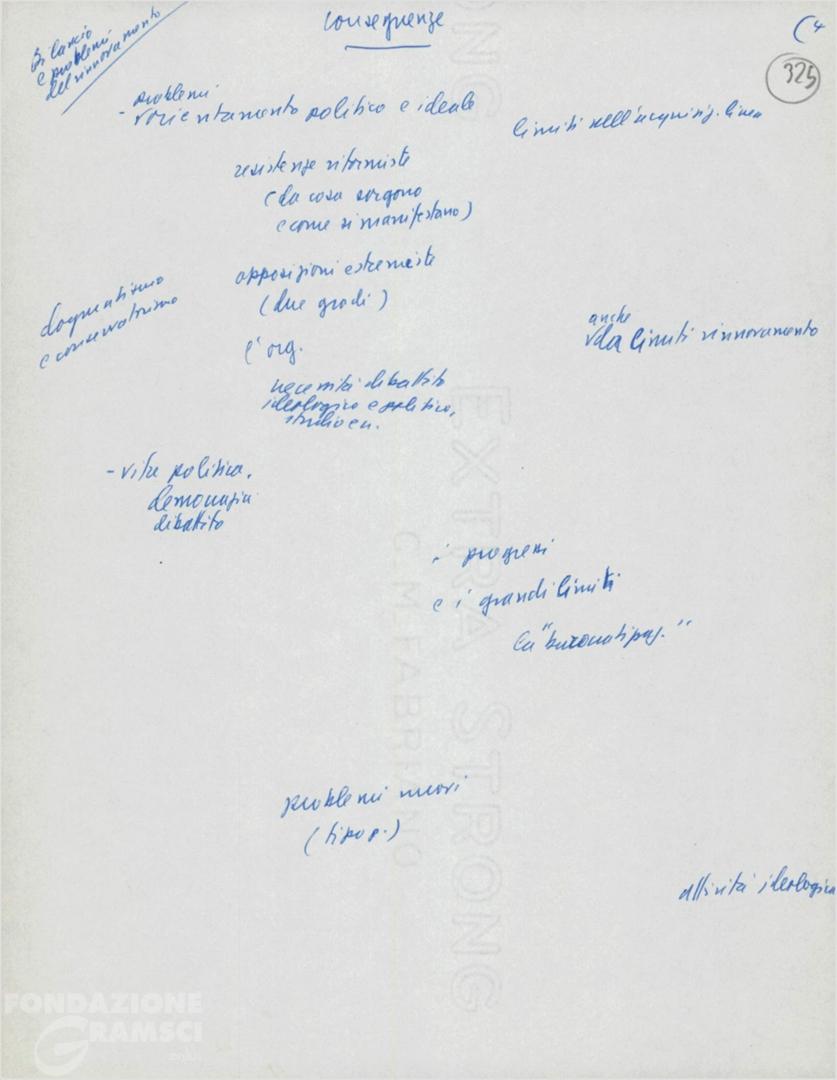 Bilancio
e problemi
del rinnovamento
conseguenze
(4
325
problemi
- orientamento politico e ideale
limiti nell'acquisiz. linea
resistenze riformiste
(da cosa sorgono
e come si manifestano)
opposizioni estremiste
(due gradi)
dogmatismo
e conservatorismo
l'org.
anche
da limiti rinnovamento
necessità dibattito
ideologico e politico,
studio
- vita politica,
democrazia
dibattito
i progressi
e i grandi limiti
la "burocratizzaz."
problemi nuovi
(tipo p.)
attività ideologica
EXTRA STRONG
C.M.FABRIANO
FONDAZIONE
GRAMSCI